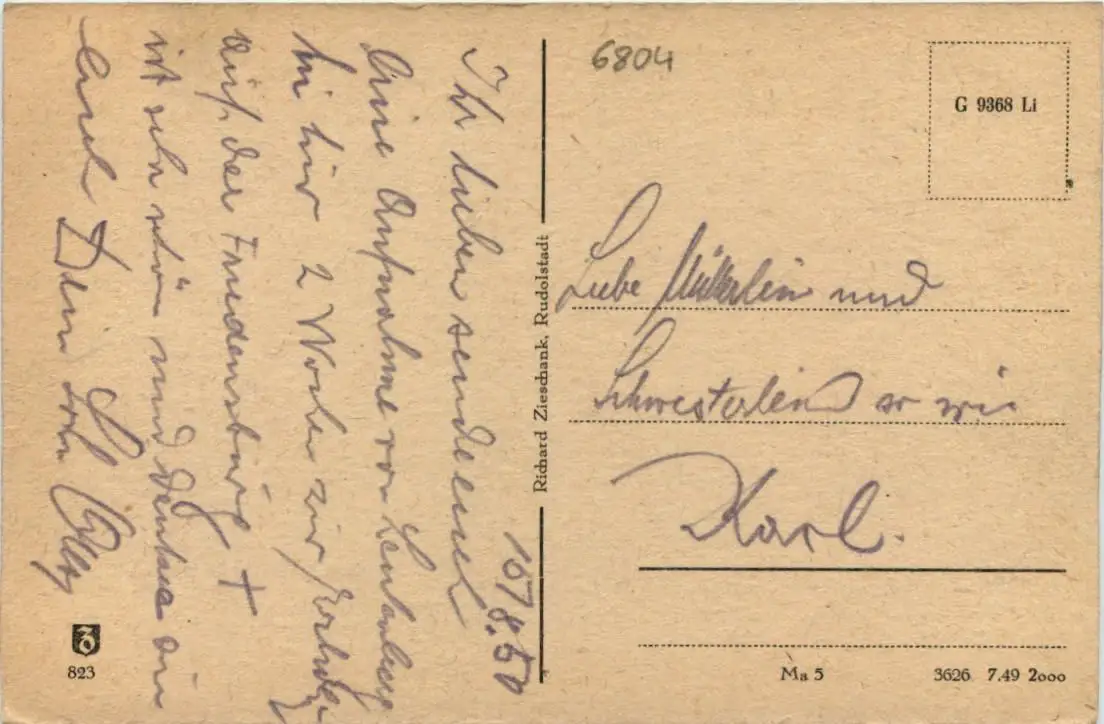 6804
G 9368 Li
Liebe Mütterlein und
Schwesterlein so wie
Karl.
15/8.50
Ihr lieben sende euch
eine Aufnahme von Leutenberg
bin hier 2 Wochen zur
auf der Friedensburg +
ist sehr schön und denke an
euch Dein Sohn
Richard Zieschank, Rudolstadt
823
Ma 5
3626 7.49 2000